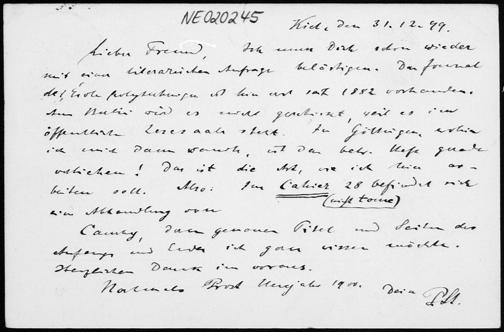 NE020245
Kiel, den 31.12.99.
Lieber Freund, Ich muss Dich schon wieder
mit einer literarischen Anfrage belästigen. Das Journal
de l'École polytechnique ist hier erst seit 1882 vorhanden.
Aus Berlin wird es nicht geschickt, weil es im
öffentlichen Lesesaale steht. In Göttingen, wohin
ich mich dann wandte, ist das betr. Heft gerade
verliehen! Das ist die Art, wie ich hier ar-
beiten soll. Also: Im Cahier 28 befindet sich
(nicht tome)
eine Abhandlung von
Cauchy, deren genauen Titel und Seiten des
Anfangs und Endes ich gern wissen möchte.
Herzlichen Dank im voraus.
Nochmals Prost Neujahr 1900. Dein
P. St.